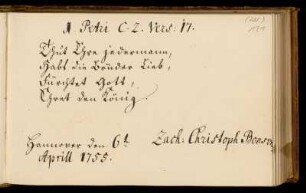 1 Petri C. 2. Vers: 17.
Thut Ehre jedermann,
Habt die Brüder Lieb,
Fürchtet Gott,
Ehret den König.
Hannover den 6t.
Aprill 1755.
Zach: Christoph